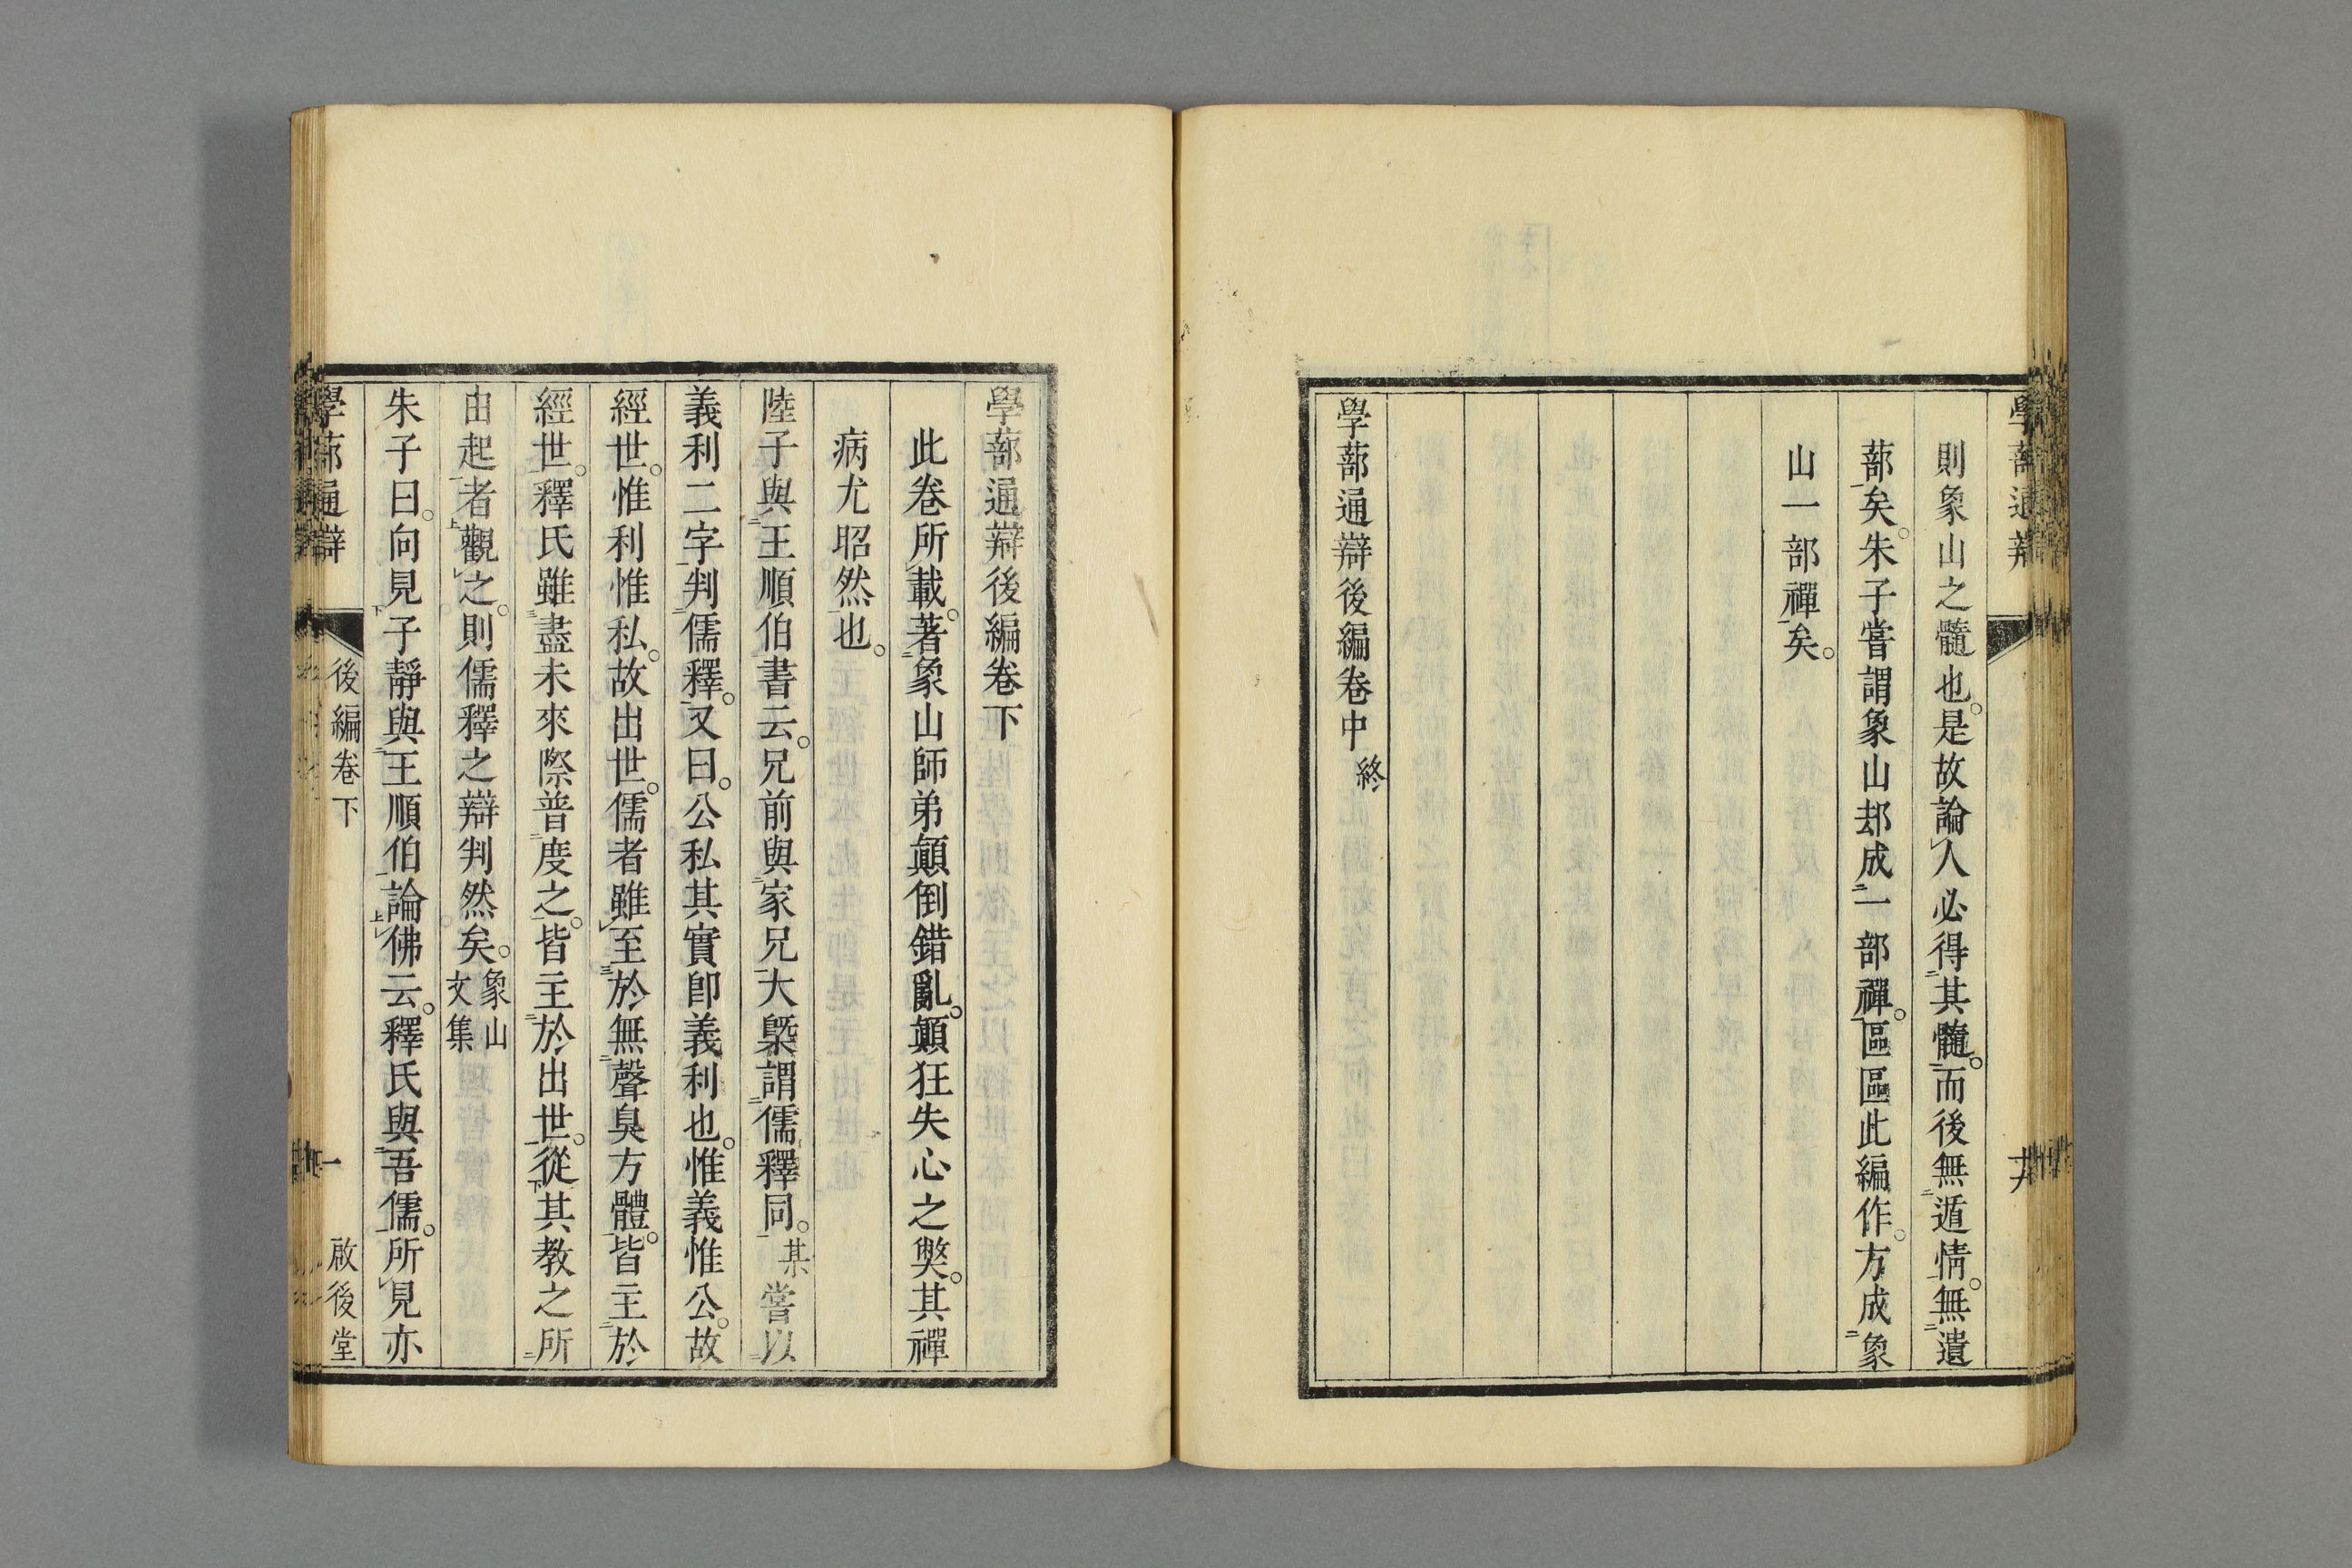 則象山之髓也。是故論人必得其髓。而後無遁情。無遺
蔀矣。朱子嘗謂象山却成一部禪。區區此編作。方成象
山一部禪矣。
學蔀通辯後編卷中 終
學蔀通辯後編卷下
此卷所載。著象山師弟顛倒錯亂。顛狂失心之弊。其禪
病尤昭然也。
陸子與王順伯書云。兄前與家兄大槩謂儒釋同。某嘗以
義利二字判儒釋。又曰。公私其實卽義利也。惟義惟公。故
經世。惟利惟私。故出世。儒者雖至於無聲臭方體。皆主於
經世。釋氏雖盡未來際普度之。皆主於出世。從其教之所
由起者觀之。則儒釋之辯判然矣。象山文集
朱子曰。向見子靜與王順伯論佛云。釋氏與吾儒。所見亦
學蔀通辯 後編卷下 一 啟後堂